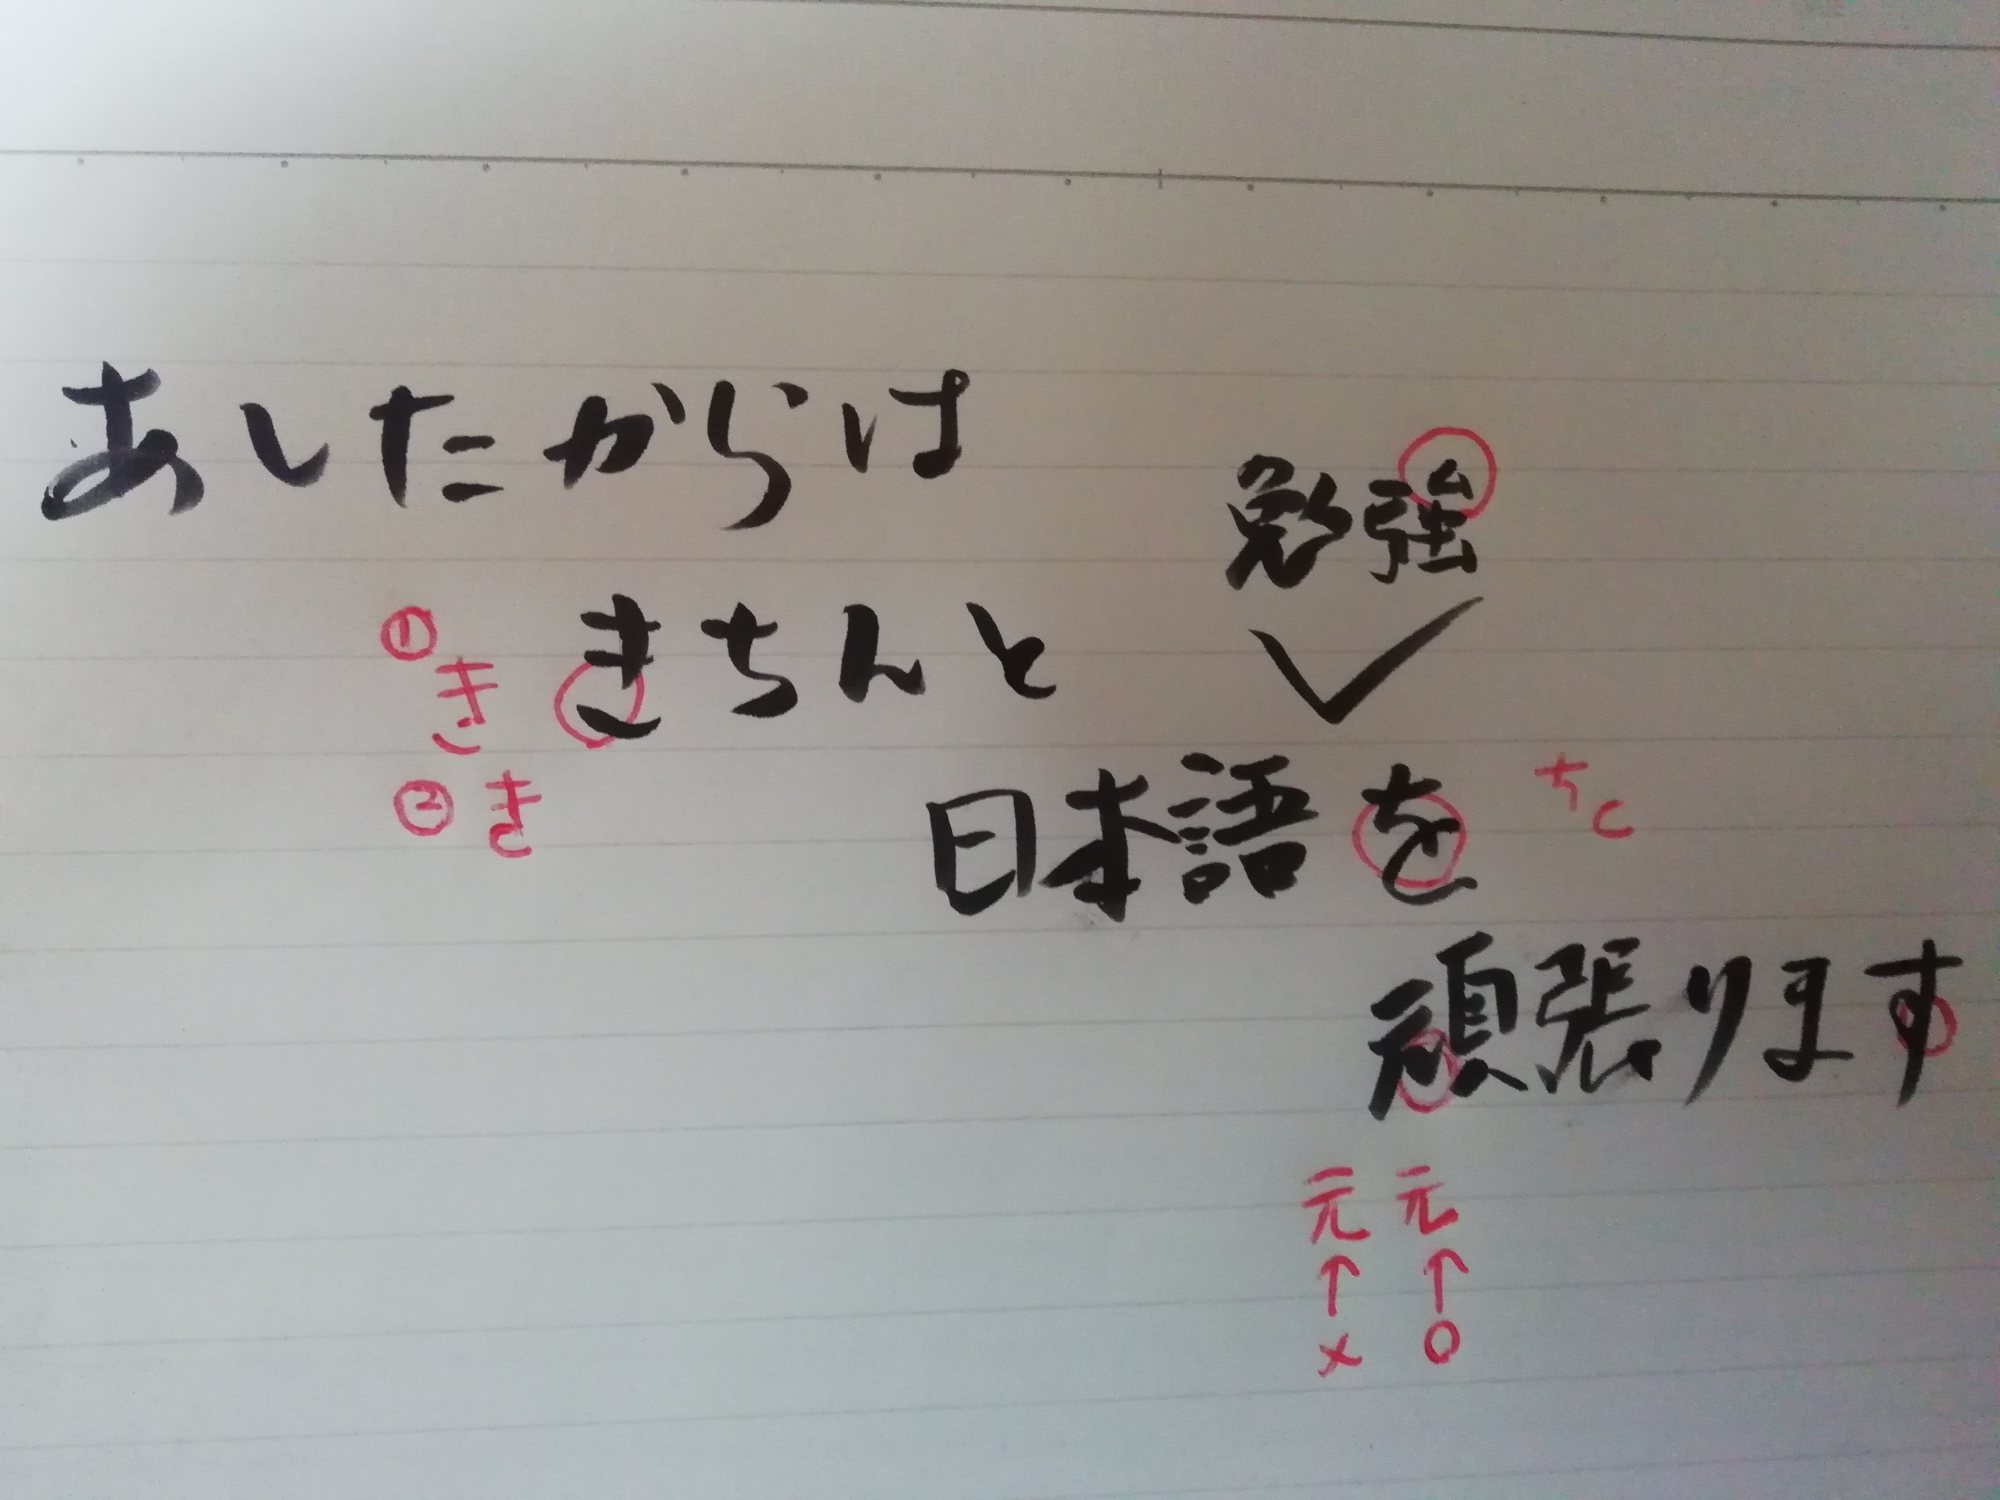 あしたからは
勉強
① き きちんと
② き
日本語を ちc
頑張ります
元 元
↑ ↑
× ○